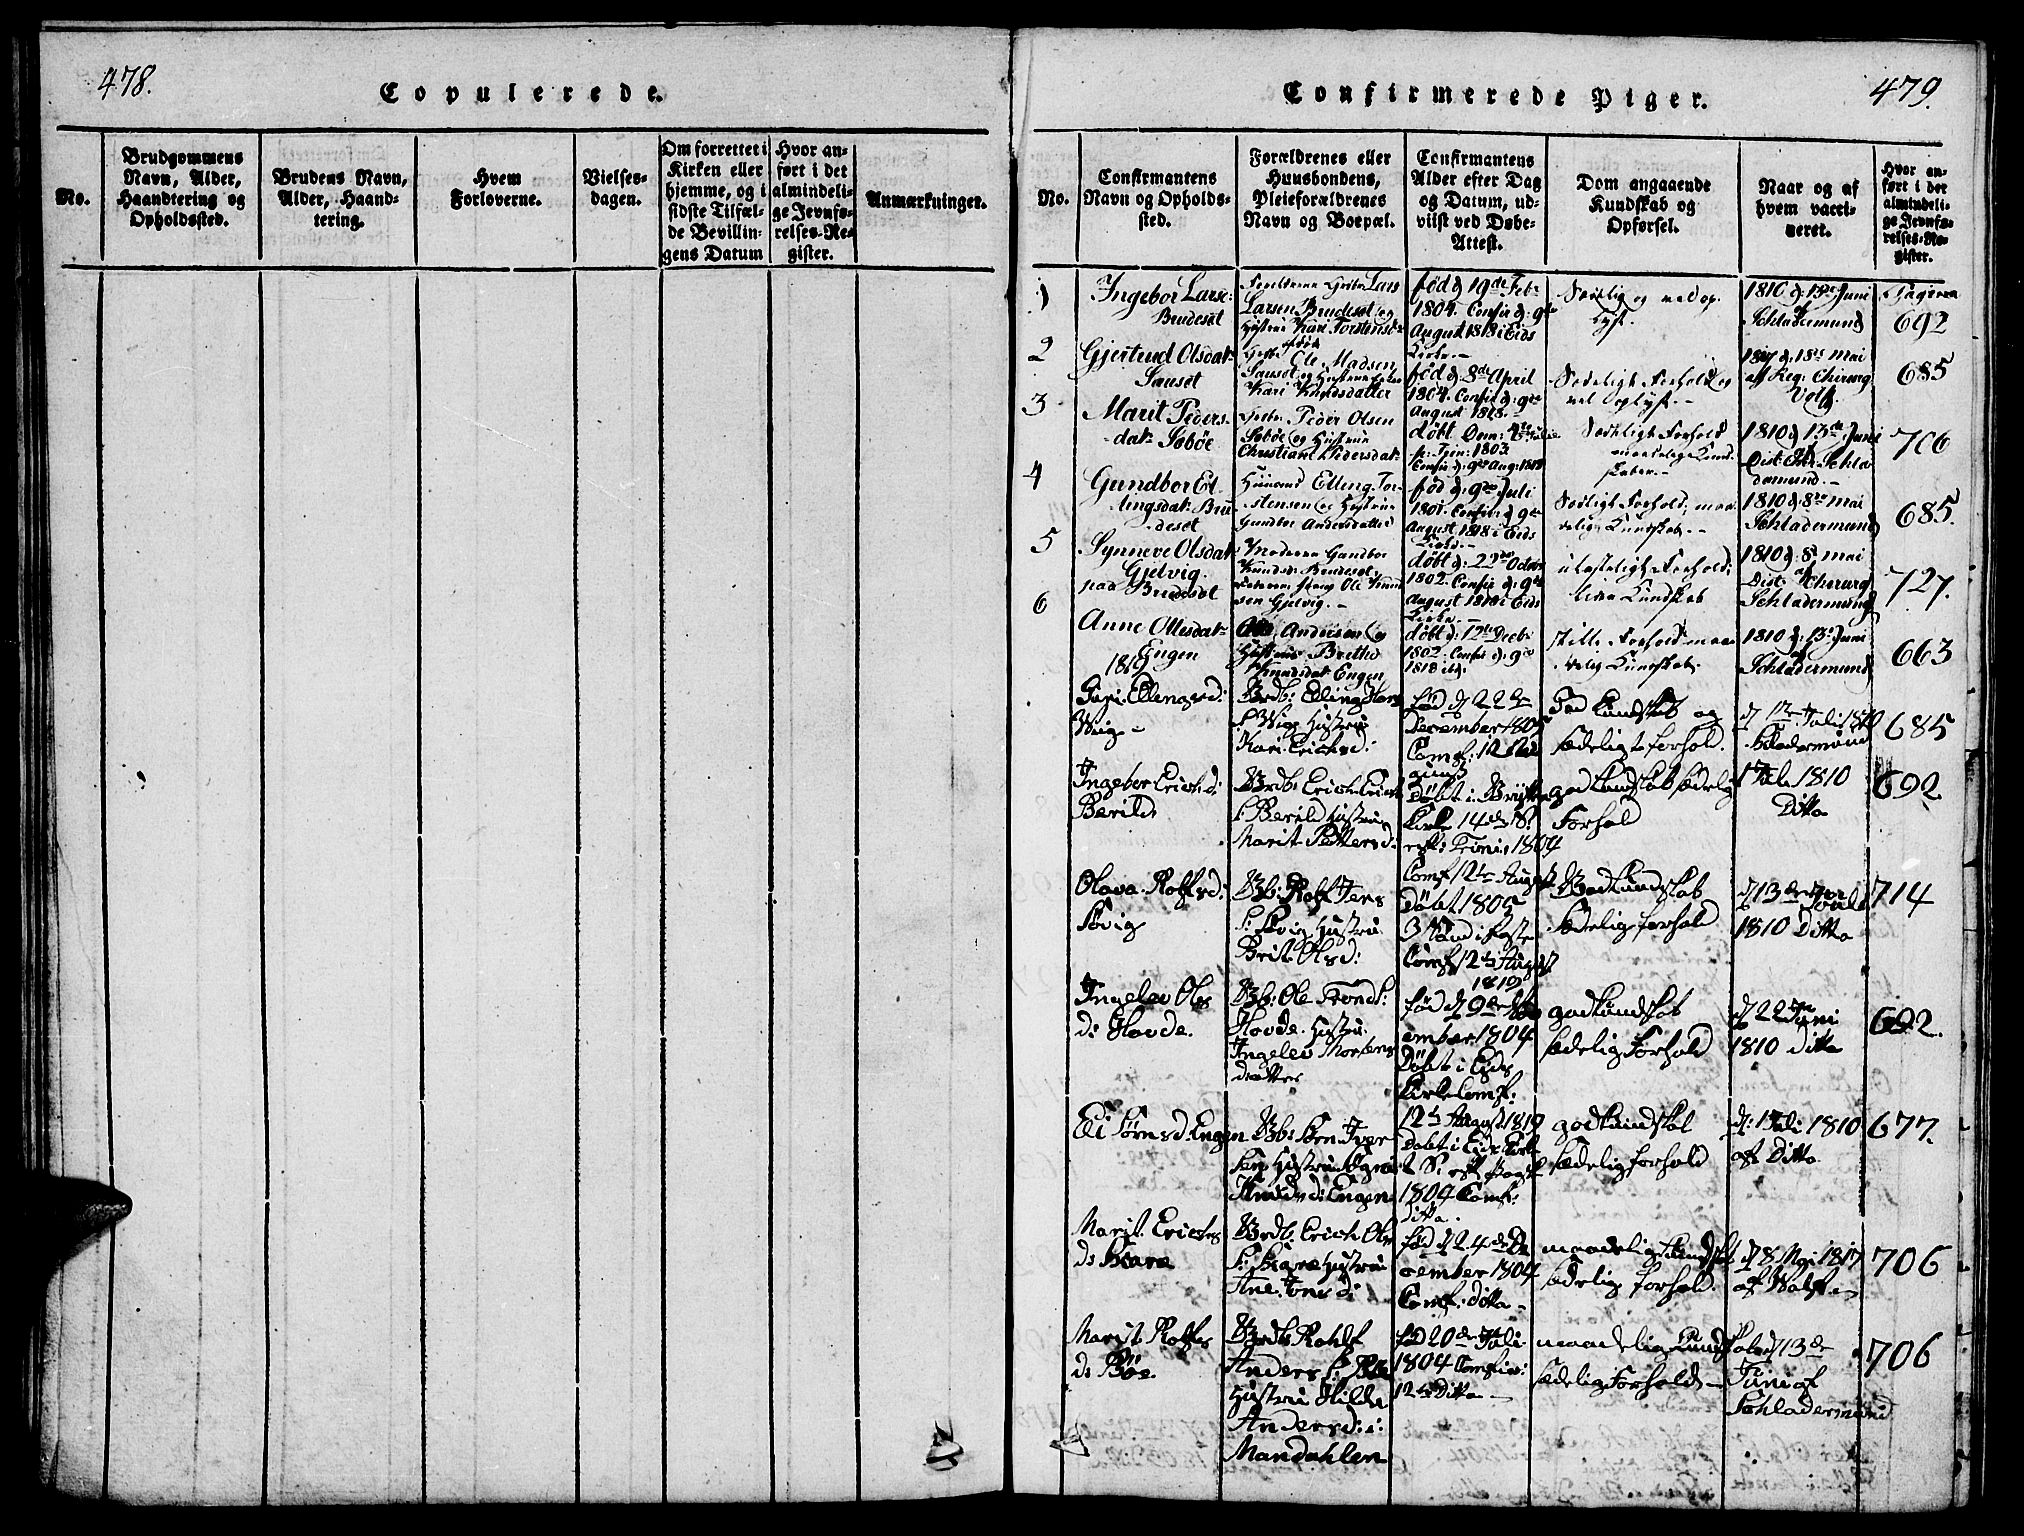 478.
Copulerede.
No.
Brudgommens
Navn, Alder,
Haandtering og
Opholdssted.
Brudens Navn,
Alder, Haand-
tering.
Hvem
Forloverne.
Vielses-
dagen.
Om forrettet i
Kirken eller
hjemme, og i
sidste Tilfæl-
de Bevillin-
gens Datum
Hvor an-
ført i det
almindeli-
ge Jevnfø-
relses-Re-
gister.
Anmærkninger.
Confirmerede Piger.
479.
No.
Confirmantens
Navn og Opholds-
sted.
Forældrenes eller
Huusbondens,
Pleieforældrenes
Navn og Boepæl.
Confirmantens
Alder efter Dag
og Datum, ud-
viist ved Døbe-
Attest.
Dom angaaende
Kundskab og
Opførsel.
Naar og af
hvem vacci-
neret.
Hvor an-
ført i det
almindeli-
ge Jevnfø-
relses-Re-
gister.
1
Ingebor Lars
Brudeset
Lars
Larsen Brudeset og
Hustrue Kari Torstensd
fød d 19de Febr
1804. Confir d: 9de
August 1818 i Eids
Kirke.-
Sædelig og vel op-
lyst.
1810 d: 13de Juni
Schladermund
692
2
Gjertrud Olsdat
Sauset
Ole Madsen
Sauset og Hustrue
Kari Knudsdatter
fød d 8de April
1804. Confir d: 9de
August 1818.-
Sædeligt Forhold og
vel oplyst.-
1817 d: 18de Mai
af Reg: Chirurg
685
3
Marit Peders-
dat: Søbøe
Peder Olsen
Søbøe og Hustrue
Christiane Pedersdat
døbt Dom:
p. Tri: 1803.
Confir d: 9de Aug: 1818
Sædeligt Forhold
maadelige Kund-
skaber.-
1810 d 13de Juni
Dist: Chir: Schla
dermund.-
706
4
Gundbor El-
lingsdat: Bru
deset
Elling Tor-
stensen og Hustrue
Gundbor Andersdatter
fød d: 9de Juli
1801. Confir d 9de
August 1818 i Eids
Kirke.-
Sædeligt Forhold, maa-
delig Kundskab.-
1810 d: 8de Mai
Schladermund
685.
5
Synneve Olsdat
Gjelvig
paa Brudeset
Moderen Gundbor
Knudsd: Brudeset,
Ole Knud
sen Gjelvig.-
døbt d: 22de Octobr
1802. Confir d: 9de
August 1818 i Eids
Kirke.-
ulasteligt Forhold;
Kundskab
1810 d: 8 Mai
Dist: Chirurg
Schladermund
727.
6
Anne Ottesdat
Engen
Andersen og
Hustrue Brithe
Knudsdat Engen
døbt d: 12te Decbr
1802. Confir d: 9de
1818 ibd.
stille Forhold maa-
delig Kundskab.
1810 d: 13 Juni
Schladermund
663
1819
Guri Ellengsd:
Wiig -
Brdb: Elling Hans
S: Wiig Hustru
Kari Erichsd:
fød d 22de
December 1805
Comf: 12te Au
gust
God Kundskab og
sædeligt forhold.
d 1te Juli 1810
Sladermund
685
Ingebor Erichsd:
Berild
Brdb: Erich Erich
S: Berild Hustru
Marit Pettersd:
Døbt i Gryten
Kirke 14de S:
eft: Trini: 1804
Comf 12te August
god Kundskab sædelig
Forhold
1 Juli 1810
Ditto
692.
Olava Rolfsd:
Søvig
Bb: Rolf Jens
S: Søvig Hustru
Brit Olsd:
Døbt 1805
3 Sønd i Faste
Comf 12te August
1819
God Kundskab
sædelig forhold
d 13de Juli
1810 Ditto
714
Ingelev Ols
d: Hovde.
Bb: Ole Trond S:
Hovde Hustru
Ingelev Thorstens
datter
fød d 9de Nov
ember 1804
Døbt i Eids
Kirke Comf:
12te August 1819
god Kundskab
sædelig Forhold
d 22 Juni
1810 Ditto
692.
Eli Sørnsd: Engen
Bb: Sørn Iver
sen Hustru
Knudsd: Engen
Døbt i Eids Kirke
1 S: eft Paaske
1804 Comf:
ditto.
god Kundskab
sædelig forhold
d: 1 Juli 1810
af Ditto
677.
Marit Erichs
d: Skare
Brdb. Erich Ols
S: Skare Hustru
Ane Jonsd:
fød d 24de De
cember 1804
Comf: ditto -
maadelig Kundskab
sædelig forhold.
d 8 Mai 1817
af
706
Marit Rolfs
d: Bøe.
Brdb Rohlf
Anders S: Bøe
Hustru Hilde
Andersd: i
Mandahlen
fød 20de Juli
1804 Comfir:
12te Ditto -
maadelig Kundskab
sædelig Forhold -
d 13de
Juni af
Schladermund
706